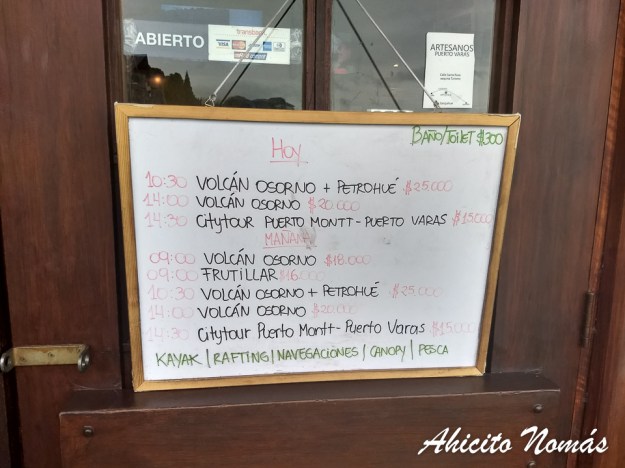 ABIERTO
transbank
VISA
ARTESANOS
PUERTO VARAS
BAÑO/TOILET $300
HOY
10:30 VOLCÁN OSORNO + PETROHUÉ $25.000
14:00 VOLCÁN OSORNO $20.000
14:30 CITYTOUR PUERTO MONTT - PUERTO VARAS $15.000
MAÑANA
09:00 VOLCÁN OSORNO $18.000
09:00 FRUTILLAR $16.000
10:30 VOLCÁN OSORNO + PETROHUÉ $25.000
14:00 VOLCÁN OSORNO $20.000
14:30 CityTour Puerto Montt - Puerto Varas $15.000
KAYAK / RAFTING / NAVEGACIONES / CANOPY / PESCA
Ahicito Nomás